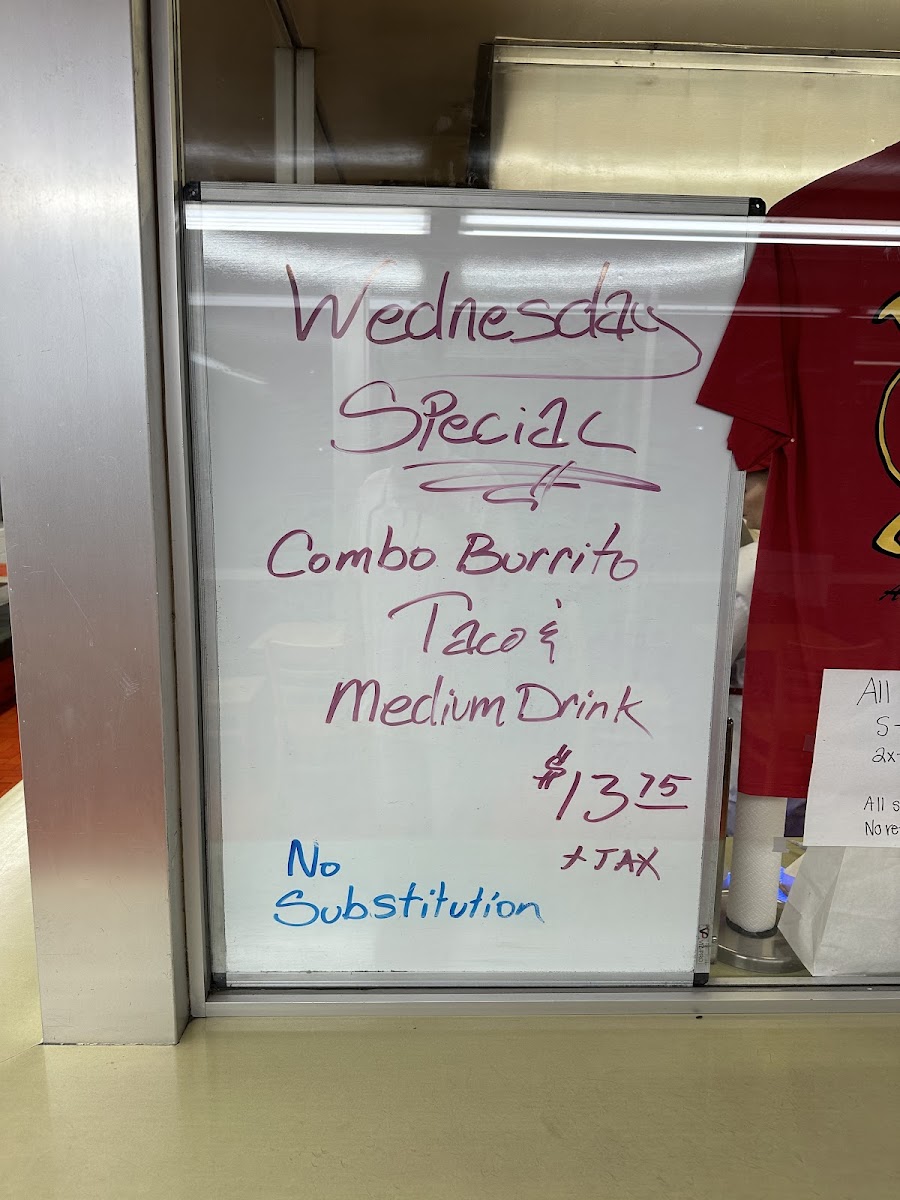 Wednesday
Special
Combo Burrito
Taco &
Medium Drink
$13 75
+ TAX
No
Substitution
All
S-
2x-
All s
No re